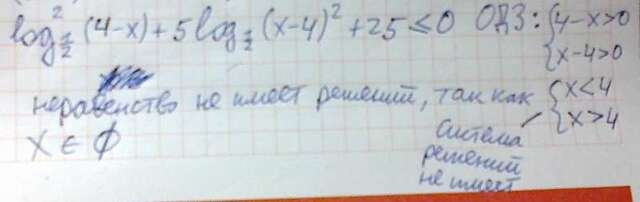 log²_{1/2} (4-x) + 5 log_{1/2} (x-4)² + 25 ≤ 0 ОДЗ: { 4-x>0
{ x-4>0
неравенство не имеет решений, так как { x<4
{ x>4
x ∈ ∅
Система
решений
не имеет